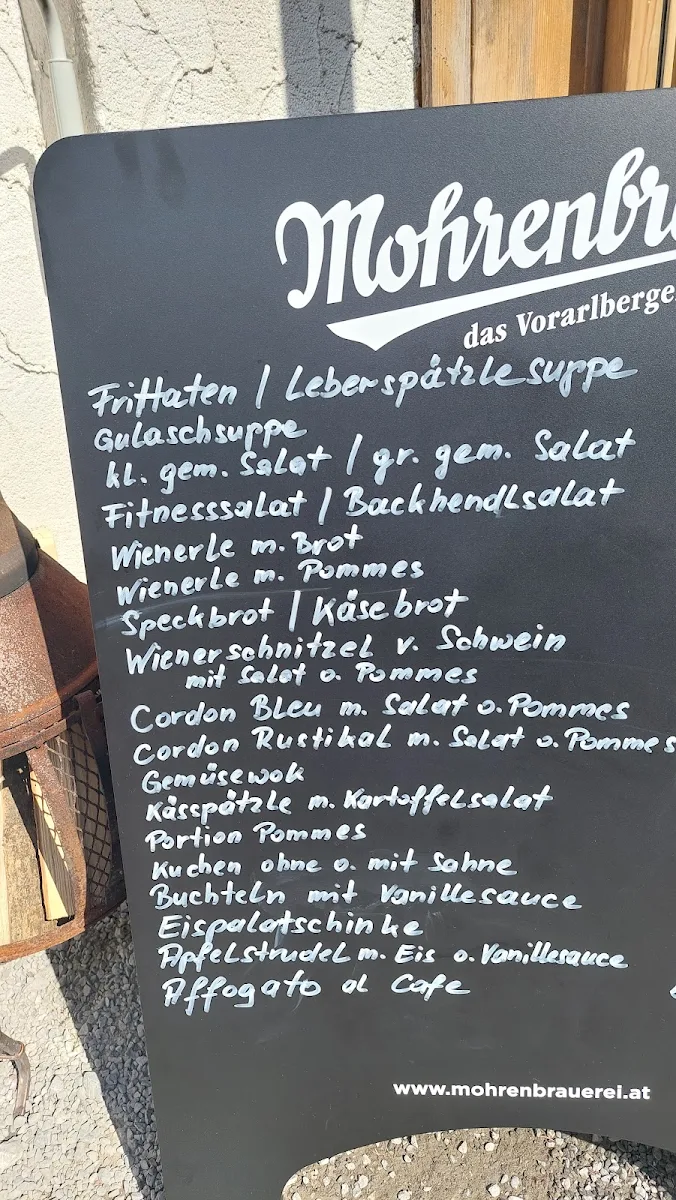 Mohrenbr
das Vorarlberge
Frittaten / Leberspätzlesuppe
Gulaschsuppe
kl. gem. Salat / gr. gem. Salat
Fitnesssalat / Backhendlsalat
Wienerle m. Brot
Wienerle m. Pommes
Speckbrot / Käsebrot
Wienerschnitzel v. Schwein
mit Salat o. Pommes
Cordon Bleu m. Salat o. Pommes
Cordon Rustikal m. Salat o. Pommes
Gemüsewok
Kässpätzle m. Kartoffelsalat
Portion Pommes
Kuchen ohne o. mit Sahne
Buchteln mit Vanillesauce
Eispalatschinke
Apfelstrudel m. Eis o. Vanillesauce
Affogato al Cafe
www.mohrenbrauerei.at